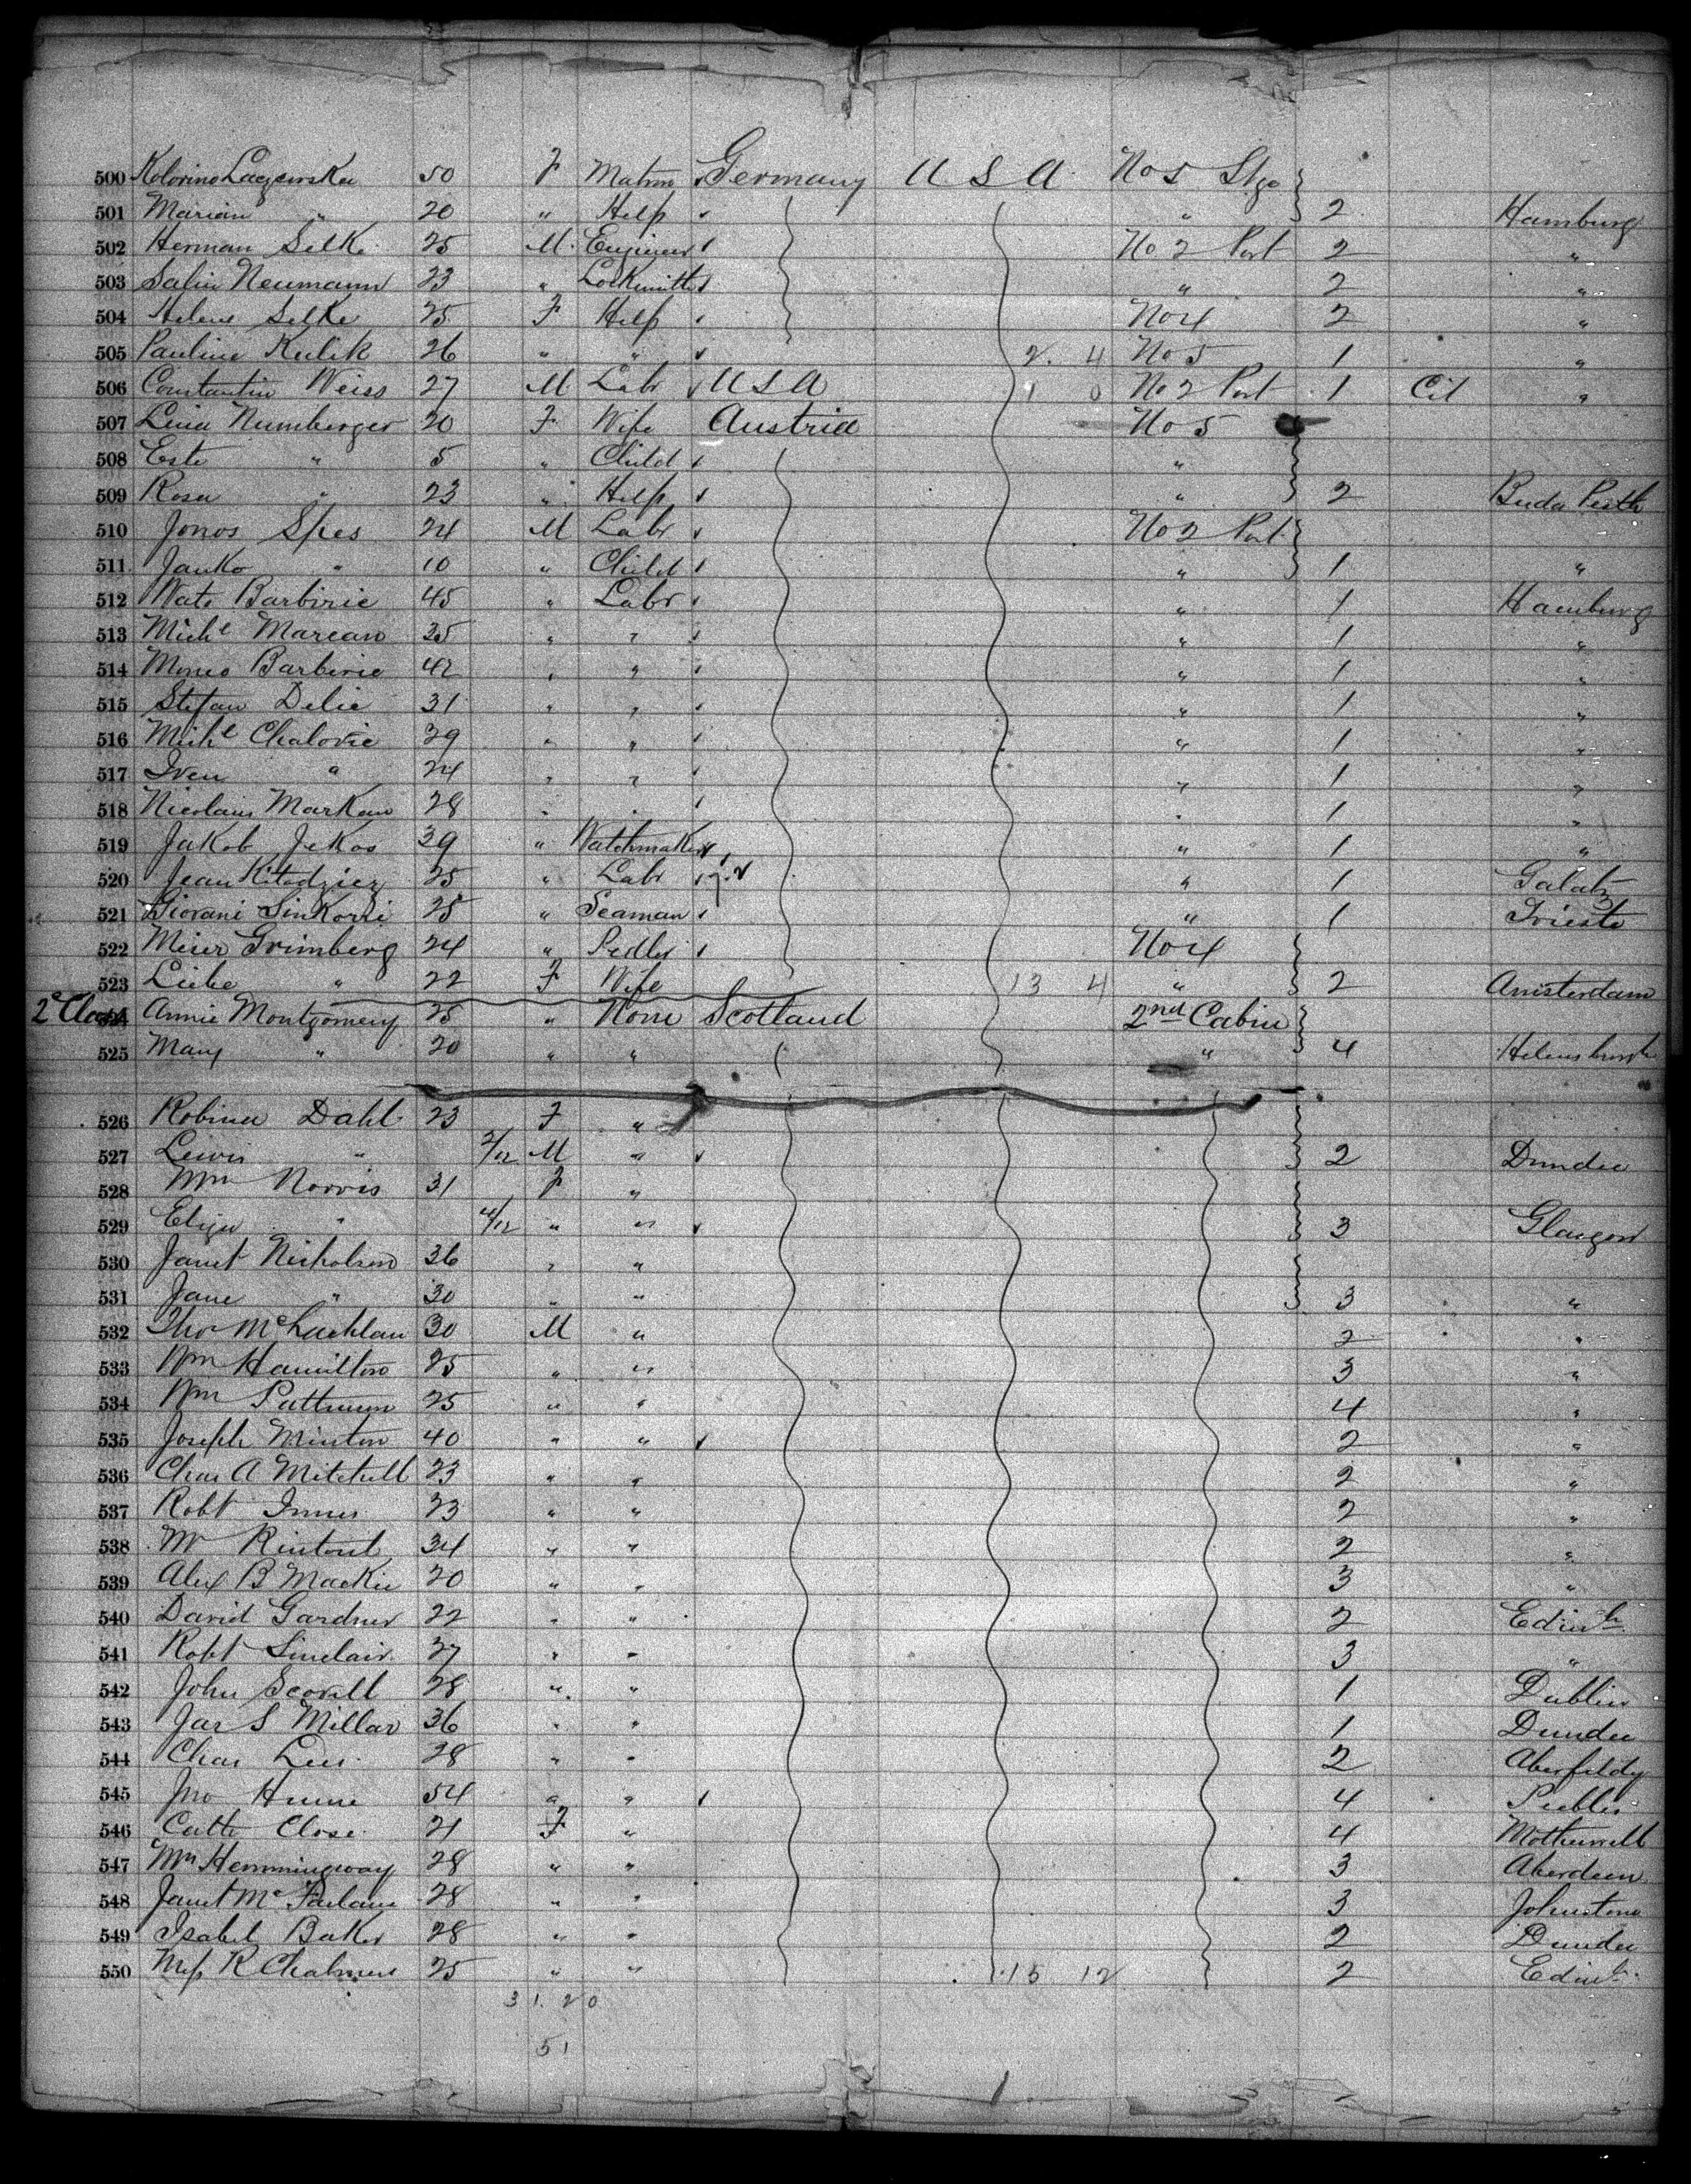 500 Kolorino Laczewska 50 F Matron Germany U S A No 5 Stge
501 Marian " 20 " Help " 2 Hamburg
502 Herman Selke 25 M Engineer No 2 Port 2 "
503 Salin Neumann 23 " Locksmith " 2 "
504 Helene Selke 25 F Help No 4 2 "
505 Pauline Kulik 26 " " 2. 4 No 5 1 "
506 Constantin Weiss 27 M Labr U S A 1 0 No 2 Port 1 Cit "
507 Lina Numberger 20 F Wife Austria No 5
508 Este " 5 " Child "
509 Rosa " 23 " Help " 2 Buda Pesth
510 Jonos Spes 24 M Labr No 2 Port
511 Janko " 10 " Child " 1 "
512 Wate Barbirie 45 " Labr " 1 Hamburg
513 Michl Marean 35 " " " 1 "
514 Momo Barbirie 42 " " " 1 "
515 Stefan Delie 31 " " " 1 "
516 Michl Chalovie 39 " " " 1 "
517 Iven " 24 " " " 1 "
518 Nicolaus Markan 28 " " " 1 "
519 Jakob Jekos 39 " Watchmaker " 1 "
520 Jean Kitodziez 25 " Labr " 1 Galatz
521 Giovani Sinkovri 25 " Seaman " 1 Trieste
522 Meier Grimberg 24 " Pedler No 4
523 Liebe " 22 F Wife 13 4 " 2 Amsterdam
2d Class 524 Annie Montgomery 25 " None Scotland 2nd Cabin
525 Mary " 20 " " " 4 Helensburgh
526 Robina Dahl 23 F "
527 Lewis " 2/12 M " 2 Dundee
528 Mrs Norris 31 F "
529 Eliza " 4/12 " " 3 Glasgow
530 Janet Nicholson 36 " "
531 Jane " 30 " " 3 "
532 Thos McLachlan 30 M " 2 "
533 Wm Hamilton 25 " " 3 "
534 Wm Pattman 25 " " 4 "
535 Joseph Minton 40 " " 2 "
536 Chas A Mitchell 23 " " 2 "
537 Robt Innes 23 " " 2 "
538 Mr Rintoul 34 " " 2 "
539 Alex B Mackie 20 " " 3 "
540 David Gardner 22 " " 2 Edinh
541 Robt Sinclair 27 " " 3 "
542 John Scovill 28 " " 1 Dublin
543 Jas S Millar 36 " " 1 Dundee
544 Chas Lees 28 " " 2 Aberfeldy
545 Jno Hume 54 " " 4 Peebles
546 Cathe Close 21 F " 4 Motherwell
547 Mrs Hemmingway 28 " " 3 Aberdeen
548 Janet McFarlane 28 " " 3 Johnstone
549 Isabel Baker 28 " " 2 Dundee
550 Miss R Chalmers 25 " " 15 12 2 Edinh
31. 20
51